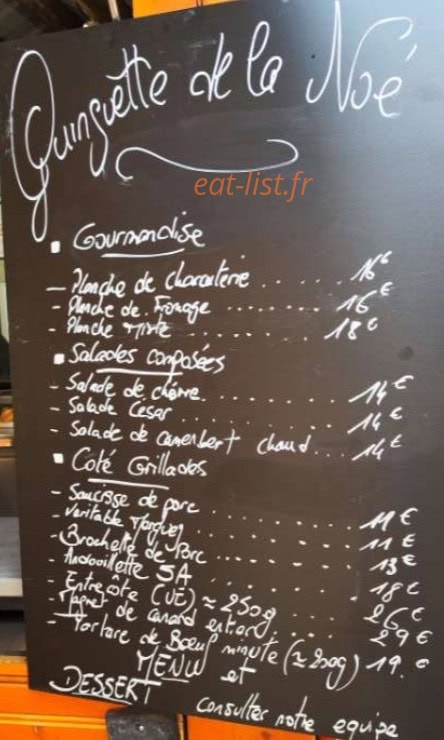 Guinguette de la Noé
eat-list.fr
▪ Gourmandise
- Planche de charcuterie ...... 16€
- Planche de Fromage ....... 16€
- Planche Mixte ........ 18€
▪ Salades composées
- Salade de chèvre ........ 14€
- Salade Cesar ........ 14€
- Salade de camembert chaud ... 14€
▪ Coté Grillades
- Saucisse de porc ........ 11€
- Veritable Merguez ........ 11€
- Brochette de Porc ....... 13€
- Andouillette 5A ....... 18€
- Entrecôte (UE) ≈ 250g .... 26€
- Magret de canard entier .... 29€
- Tartare de Bœuf minute (≈ 200g) 19.€
MENU et
DESSERT consulter notre equipe